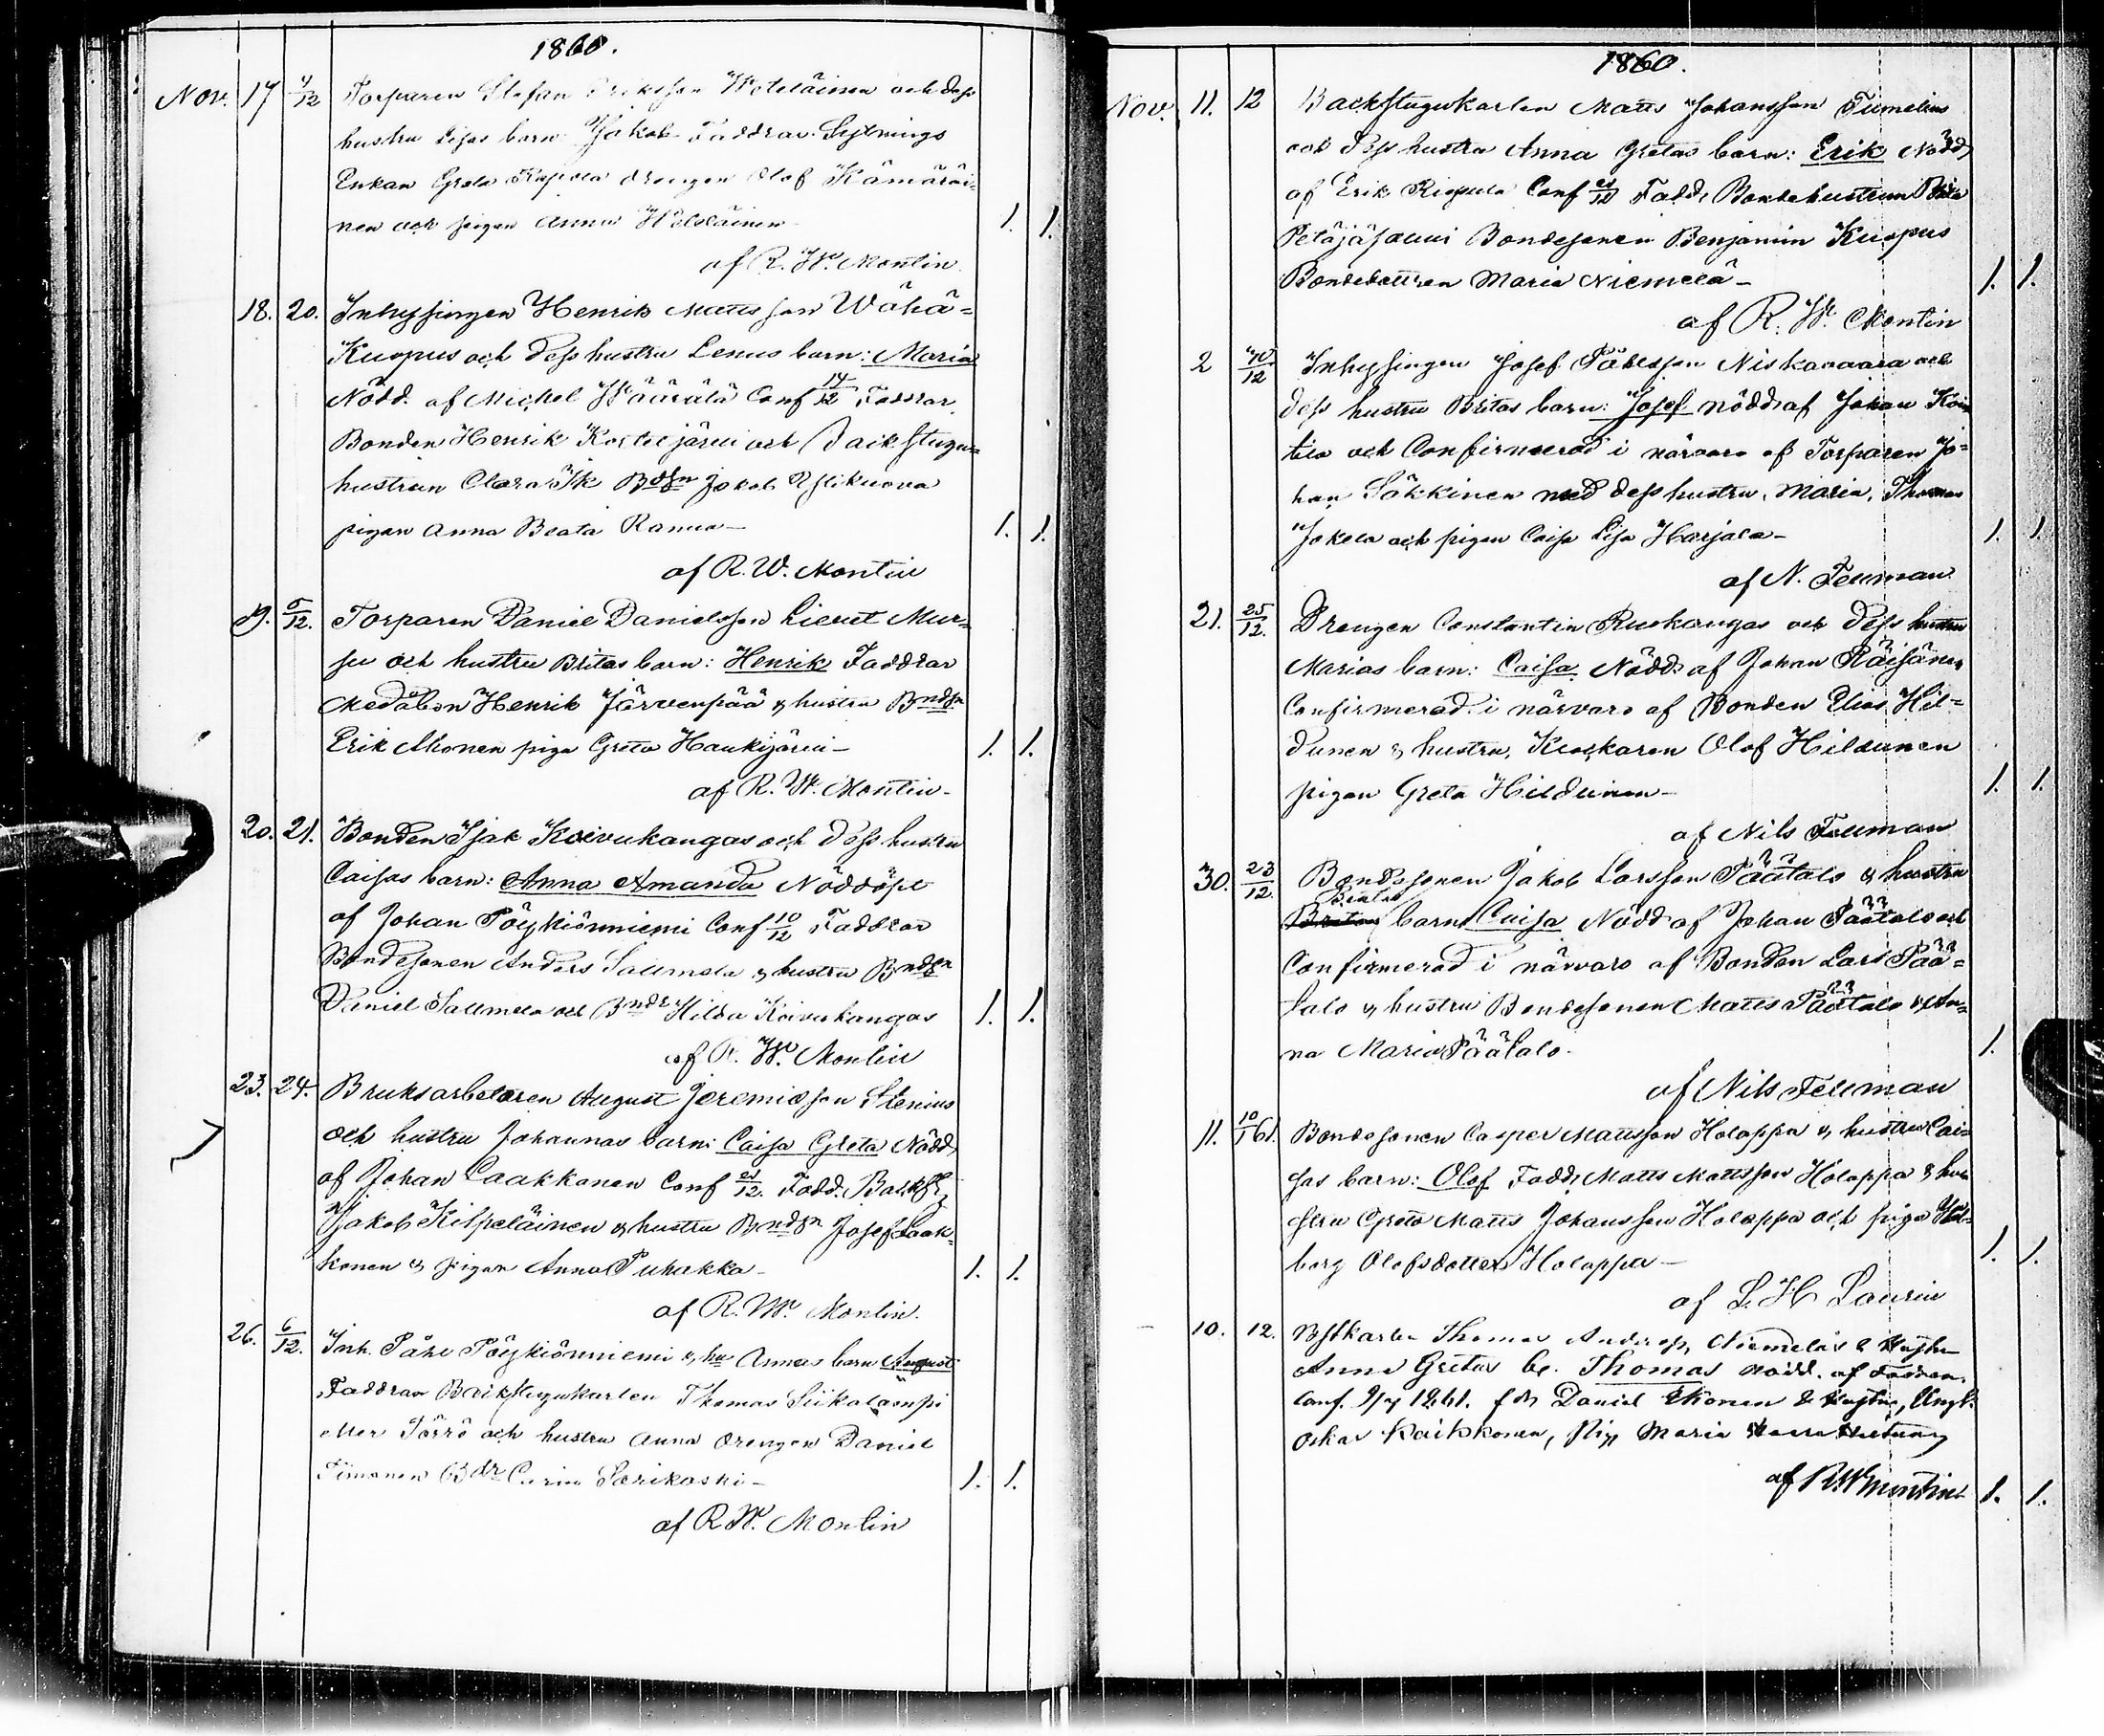 1860.
Nov. 17 4/12 Torparen Stefan Eriksson Weteläinen och dess
hustru Lisas barn Jakob Faddrar Sytnings
Enkan Greta drengen Olof Kämäräi-
nen och pigan Anna 1. 1.
af R. W. Montin
18. 20. Inhysingen Henrik Mattsson Wähä-
Kuopus och dess hustru Lenas barn: Maria
Nödd. af Michel Wäärälä Conf 14/12 Faddrar
Bonden Henrik Kostejärvi och Backstugu
hustrun Clara Bdsn Jakob
pigan Anna Beata Ranua 1. 1.
af R. W. Montin
19. 5/12. Torparen Daniel Danielsson Mur-
su och hustru Britas barn: Henrik Faddrar
Medåbon Henrik Järvenpää & hustru Bndsn
Erik Ahonen piga Greta Haukijärvi 1. 1.
af R. W. Montin
20. 21. Bonden Isak Koivukangas och dess hustru
Caisas barn: Anna Amanda Nöddöpt
af Johan Pöykiönniemi Conf 10/12 Faddrar
Bondesonen Anders Saumela & hustru Bndsn
Daniel Saumela och Bndr Hilda Koivukangas 1. 1.
af R. W. Montin
23. 24. Bruksarbetaren August Jeremiasson Stenius
och hustru Johannas barn: Caisa Greta Nödd,
af Johan Laakkonen Conf /12. Fadd. Backst
Jakob Kilpeläinen & hustru Bndsn Josef Laak-
konen & pigan Anna Puhakka 1. 1.
af R. W. Montin.
26. 6/12. Inh. Påhl Pöykiönniemi & hu Annas barn August
Faddrar Backstugukarlen Thomas Siikalampi
eller Törrö och hustru Anna drengen Daniel
Timonen Bdr Carin Sarikoski 1. 1.
af R W. Montin
1860.
Nov. 11. 12 Backstugukarlen Matts Johansson Tumelius
och dess hustru Anna Gretas barn: Erik Nödd,
af Erik Riepula Conf /12 Fadd, Bondehustrun
Petäjäsaari Bondesonen Benjamin Kuopus
Bondedottren Maria Niemelä 1. 1.
af R. W. Montin
2 /12 Inhysingen Josef Påhlsson Niskavaara och
dess hustru Britas barn: Josef nödd af Johan Koi
tila och Confirmerad i närvaro af Torparen Jo-
han Säkkinen med dess hustru, Maria, Thomas
Jokela och pigan Caisa Lisa Harjala 1. 1.
af N. Fellman
21. 25/12. Drengen Constantin Ruokangas och dess hustru
Marias barn: Caisa Nödd af Johan Räisänen
Confirmerad i närvaro af Bonden Elias Hil-
dunen & hustru, Klockaren Olof Hildunen
pigan Greta Hildunen 1. 1.
af Nils Fellman
30. 23/12. Bondesonen Jakob Larsson Päätalo & hustru
Beatas
barn Caisa Nödd af Johan Päätalo och
Confirmerad i närvaro af Bonden Lars Pää-
talo & hustru Bondesonen Matts Päätalo & An-
na Maria Päätalo. 1.
af Nils Fellman
11. 10/1 61. Bondesonen Casper Mattsson Holappa & hustru Cai-
sas barn: Olof Fadd, Matts Mattsson Holappa & hu
stru Greta Matts Johansson Holappa och piga Wal-
borg Olofsdotter Holappa 1. 1.
af L. H. Laurin
10. 12. Bstkarlen Thomas Andersso, Niemeläs & Hustru
Anna Gretas b. Thomas nödd. af Fadren.
Conf. 9/7 1861. f Daniel Ekonen & Hustru, Yngl.
Oskar Kaikkonen, Pig. Maria
af R W Montin 1. 1.